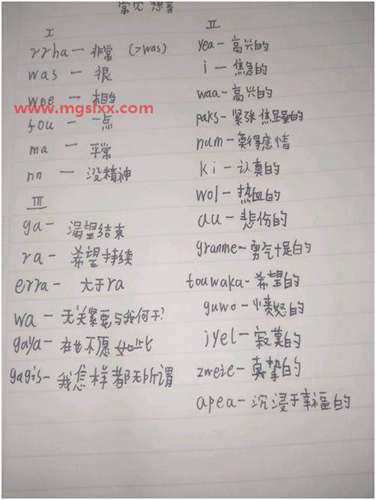 常见 想音
I
rrha — 非常 (>was)
was — 很
wee — 相当
fou — 一点
ma — 平常
nn — 没精神
III
ga — 渴望结束
ra — 希望持续
erra — 大于ra
wa — 无关紧要与我何干?
gaya — 在也不愿如此
gagis — 我怎样都无所谓
II
yea — 高兴的
i — 焦急的
waa — 高兴的
paks — 紧张焦虑的
num — 莫得感情
ki — 认真的
wol — 热血的
au — 悲伤的
granme — 勇气十足的
touwaka — 希望的
guwo — 愤怒的
iyel — 寂寞的
zweie — 真挚的
apea — 沉浸于幸福的
www.mgslxx.com